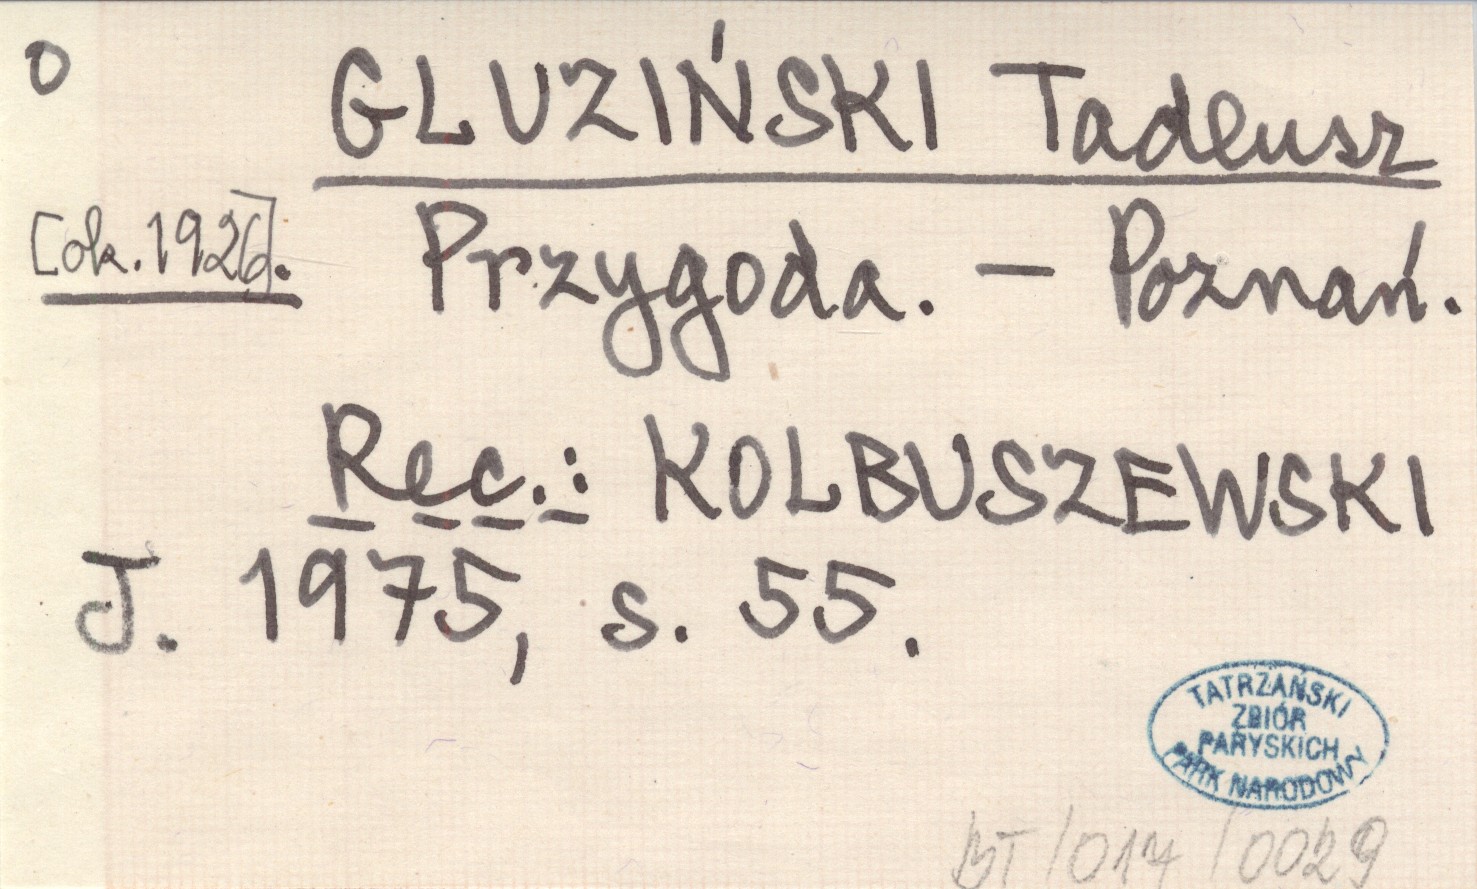 O
GLUZIŃSKI Tadeusz
[ok. 1926]. Przygoda. – Poznań.
Rec.: KOLBUSZEWSKI
J. 1975, s. 55.
TATRZAŃSKI
ZBIÓR
PARYSKICH
PARK NARODOWY
BT/017/0029